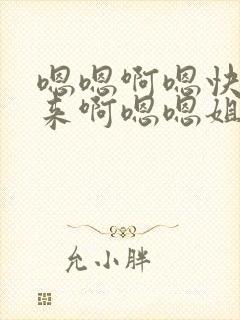 嗯嗯啊嗯快
来啊嗯嗯姐
允小胖